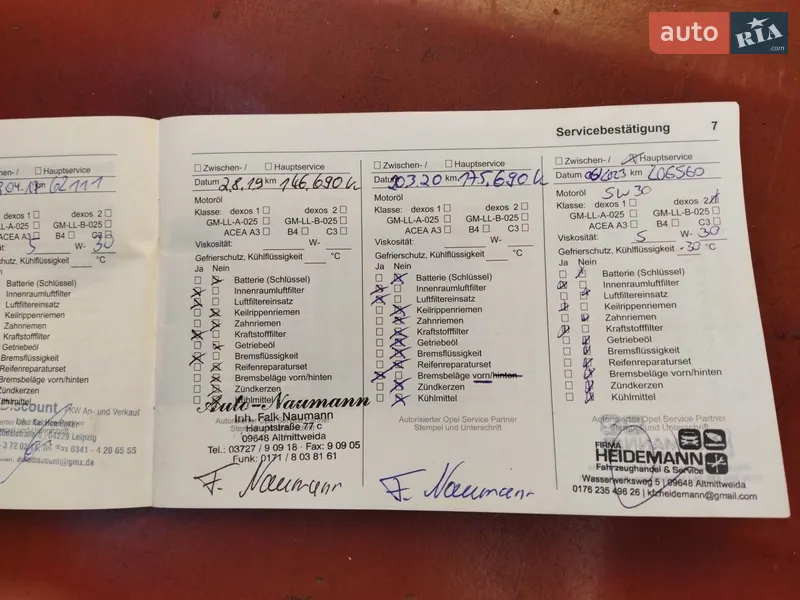 auto RIA .com
Servicebestätigung 7
Hauptservice
km 62111
dexos 1 dexos 2
GM-LL-B-025
ACEA A3 B4 C3
5 W- 30
Gefrierschutz, Kühlflüssigkeit °C
Batterie (Schlüssel)
Innenraumluftfilter
Luftfiltereinsatz
Keilrippenriemen
Zahnriemen
Kraftstofffilter
Getriebeöl
Bremsflüssigkeit
Reifenreparaturset
Bremsbeläge vorn/hinten
Zündkerzen
Kühlmittel
PKW An- und Verkauf
04229 Leipzig
0341 - 4 20 65 55
Zwischen- / Hauptservice
Datum 2.8.19 km 146,690 k
Motoröl
Klasse: dexos 1 dexos 2
GM-LL-A-025 GM-LL-B-025
ACEA A3 B4 C3
Viskosität: W-
Gefrierschutz, Kühlflüssigkeit °C
Ja Nein
Batterie (Schlüssel)
Innenraumluftfilter
Luftfiltereinsatz
Keilrippenriemen
Zahnriemen
Kraftstofffilter
Getriebeöl
Bremsflüssigkeit
Reifenreparaturset
Bremsbeläge vorn/hinten
Zündkerzen
Kühlmittel
Auto-Naumann
Inh. Falk Naumann
Hauptstraße 77 c
09648 Altmittweida
Tel.: 03727 / 9 09 18 · Fax: 9 09 05
Funk: 0171 / 8 03 81 61
F. Naumann
Zwischen- / Hauptservice
Datum 20.3.20 km 175,690 k
Motoröl
Klasse: dexos 1 dexos 2
GM-LL-A-025 GM-LL-B-025
ACEA A3 B4 C3
Viskosität: W-
Gefrierschutz, Kühlflüssigkeit °C
Ja Nein
Batterie (Schlüssel)
Innenraumluftfilter
Luftfiltereinsatz
Keilrippenriemen
Zahnriemen
Kraftstofffilter
Getriebeöl
Bremsflüssigkeit
Reifenreparaturset
Bremsbeläge vorn/hinten
Zündkerzen
Kühlmittel
Autorisierter Opel Service Partner
Stempel und Unterschrift
F. Naumann
Zwischen- / Hauptservice
Datum 06/2023 km 206560
Motoröl 5W30
Klasse: dexos 1 dexos 2
GM-LL-A-025 GM-LL-B-025
ACEA A3 B4 C3
Viskosität: 5 W- 30
Gefrierschutz, Kühlflüssigkeit -30 °C
Ja Nein
Batterie (Schlüssel)
Innenraumluftfilter
Luftfiltereinsatz
Keilrippenriemen
Zahnriemen
Kraftstofffilter
Getriebeöl
Bremsflüssigkeit
Reifenreparaturset
Bremsbeläge vorn/hinten
Zündkerzen
Kühlmittel
Autorisierter Opel Service Partner
Stempel und Unterschrift
FIRMA
HEIDEMANN
Fahrzeughandel & Service
Wasserwerksweg 5 | 09648 Altmittweida
0176 235 496 26 | kfzheidemann@gmail.com